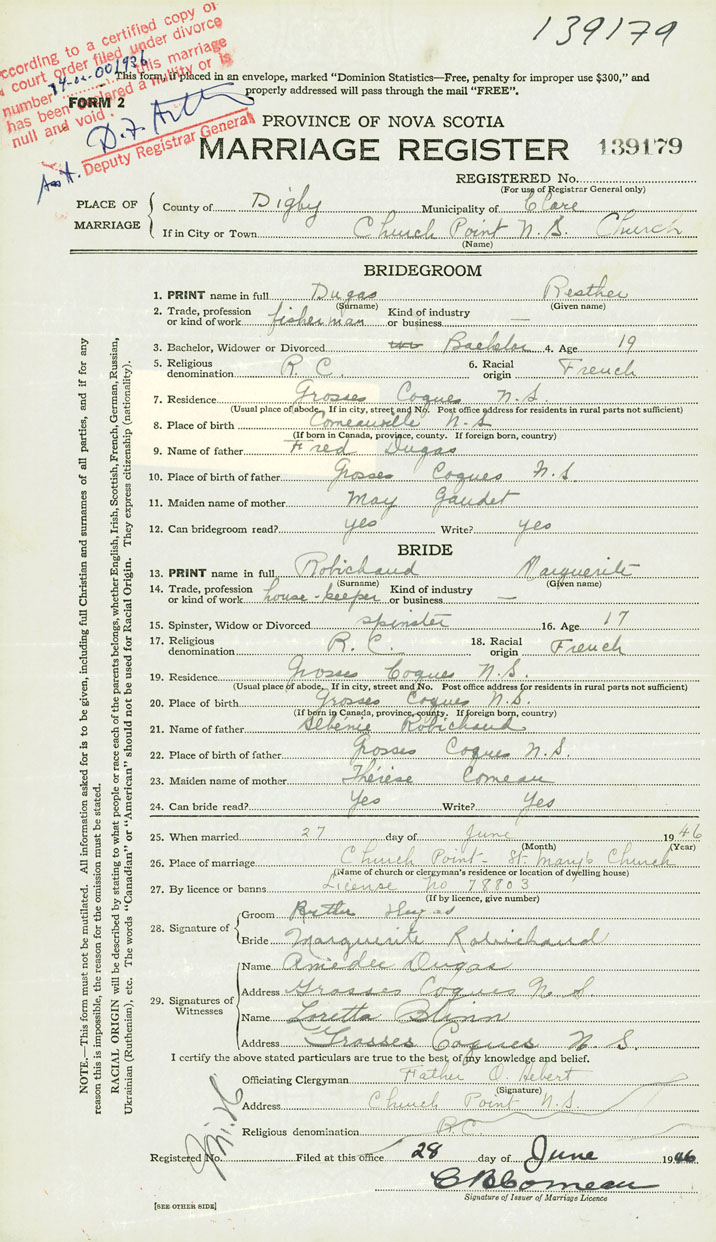 139179
According to a certified copy of
a court order filed under divorce
number 34-01-001936 this marriage
has been declared a nullity or is
null and void.
Deputy Registrar General
Asst.
This form, if placed in an envelope, marked "Dominion Statistics—Free, penalty for improper use $300," and
properly addressed will pass through the mail "FREE".
FORM 2
PROVINCE OF NOVA SCOTIA
MARRIAGE REGISTER 139179
REGISTERED No.
(For use of Registrar General only)
PLACE OF MARRIAGE
County of Digby Municipality of Clare
If in City or Town Church Point N. S. Church
(Name)
BRIDEGROOM
1. PRINT name in full Dugas Resther
(Surname) (Given name)
2. Trade, profession or kind of work fisherman Kind of industry or business —
3. Bachelor, Widower or Divorced Bachelor 4. Age 19
5. Religious denomination R. C. 6. Racial origin French
7. Residence Grosses Coques N. S.
(Usual place of abode. If in city, street and No. Post office address for residents in rural parts not sufficient)
8. Place of birth Comeauville N. S.
(If born in Canada, province, county. If foreign born, country)
9. Name of father Fred Dugas
10. Place of birth of father Grosses Coques N. S.
11. Maiden name of mother May Gaudet
12. Can bridegroom read? yes Write? yes
BRIDE
13. PRINT name in full Robichaud Marguerite
(Surname) (Given name)
14. Trade, profession or kind of work house-keeper Kind of industry or business —
15. Spinster, Widow or Divorced spinster 16. Age 17
17. Religious denomination R. C. 18. Racial origin French
19. Residence Grosses Coques N. S.
(Usual place of abode. If in city, street and No. Post office address for residents in rural parts not sufficient)
20. Place of birth Grosses Coques N. S.
(If born in Canada, province, county. If foreign born, country)
21. Name of father Albénie Robichaud
22. Place of birth of father Grosses Coques N. S.
23. Maiden name of mother Thérèse Comeau
24. Can bride read? Yes Write? Yes
25. When married 27 day of June 1946
(Month) (Year)
26. Place of marriage Church Point - St. Mary's Church
(Name of church or clergyman's residence or location of dwelling house)
27. By licence or banns License No 78803
(If by licence, give number)
28. Signature of
Groom
Bride Marguerite Robichaud
29. Signatures of Witnesses
Name Amedee Dugas
Address Grosses Coques N. S.
Name Loretta Blinn
Address Grosses Coques N. S.
I certify the above stated particulars are true to the best of my knowledge and belief.
Officiating Clergyman Father O. Hebert
(Signature)
Address Church Point N. S.
Religious denomination R. C.
Registered No. Filed at this office 28 day of June 1946
C B Comeau
Signature of Issuer of Marriage Licence
[SEE OTHER SIDE]
NOTE.—This form must not be mutilated. All information asked for is to be given, including full Christian and surnames of all parties, and if for any
reason this is impossible, the reason for the omission must be stated.
RACIAL ORIGIN will be described by stating to what people or race each of the parents belongs, whether English, Irish, Scottish, French, German, Russian,
Ukrainian (Ruthenian), etc. The words "Canadian" or "American" should not be used for Racial Origin. They express citizenship (nationality).